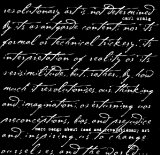 revolutionary art is not determined
carl craig
by its avantgarde content, nor its
formal or technical trickery, its
interpretation of reality or its
verisimilitude, but, rather, by how
much it revolutionises our thinking
and imagination, overturning our
preconceptions, bias and prejudice
more songs about food and revolutionary art
and inspiring us to change
ourselves and the world